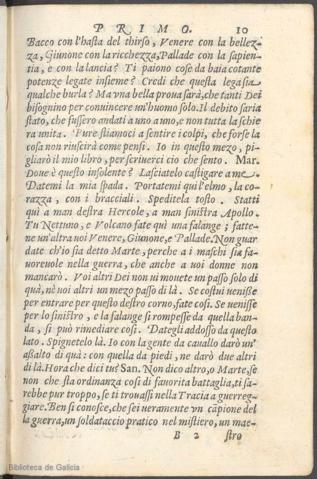 PRIMO. 10
Bacco con l'hasta del thirso, Venere con la bellez-
za, Giunone con la ricchezza, Pallade con la sapien-
tia, e con la lancia? Ti paiono cose da baia cotante
potenze legate insieme? Credi che questa lega sia
qualche burla? Ma vna bella proua sarà, che tanti Dei
bisognino per conuincere vn'huomo solo. Il debito saria
stato, che fussero andati a uno a uno, e non tutta la schie
ra unita. Pure stiamoci a sentire i colpi, che forse la
cosa non riuscirà come pensi. Io in questo mezo, pi-
gliarò il mio libro, per scriuerci cio che sento. Mar.
Doue è questo insolente? Lasciatelo castigare a me.
Datemi la mia spada. Portatemi qui l'elmo, la co-
razza, con i bracciali. Speditela tosto. Statti
quì a man destra Hercole, a man sinistra Apollo.
Tu Nettuno, e Volcano fate quì una falange; fatte-
ne un'altra uoi Venere, Giunone, e Pallade. Non guar
date ch'io sia detto Marte, perche a i maschi sia fa-
uoreuole nella guerra, che anche a uoi donne non
mancarò. Voi altri Dei non ui mouete un passo solo di
quà, nè uoi altri un mezo passo di là. Se costui uenisse
per entrare per questo destro corno, fate cosi. Se uenisse
per lo sinistro, e la falange si rompesse da quella ban-
da, si può rimediare cosi. Dategli addosso da questo
lato. Spignetelo là. Io con la gente da cauallo darò un'
assalto di quà: con quella da piedi, ne darò due altri
di là. Hora che dici tu? San. Non dico altro, o Marte, se
non che sta ordinanza cosi di fauorita battaglia, ti sa-
rebbe pur troppo, se ti trouassi nella Tracia a guerreg-
giare. Ben si conosce, che sei ueramente vn capione del
la guerra, un soldataccio pratico nel mistiero, un mae-
B 2 stro
Biblioteca de Galicia